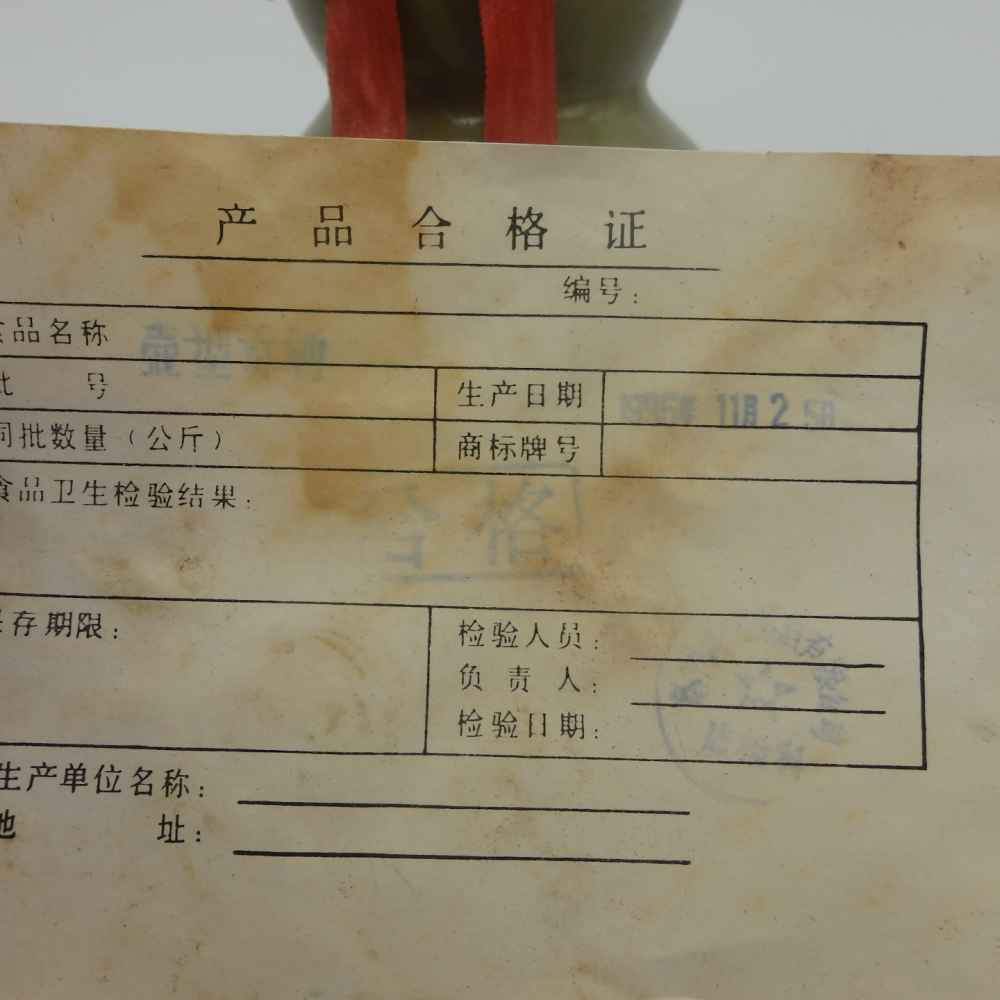 产品合格证
编号：
品名称
号
生产日期 11月25日
同批数量（公斤）
商标牌号
食品卫生检验结果：
合格
存期限：
检验人员：
负责人：
检验日期：
生产单位名称：
地址：